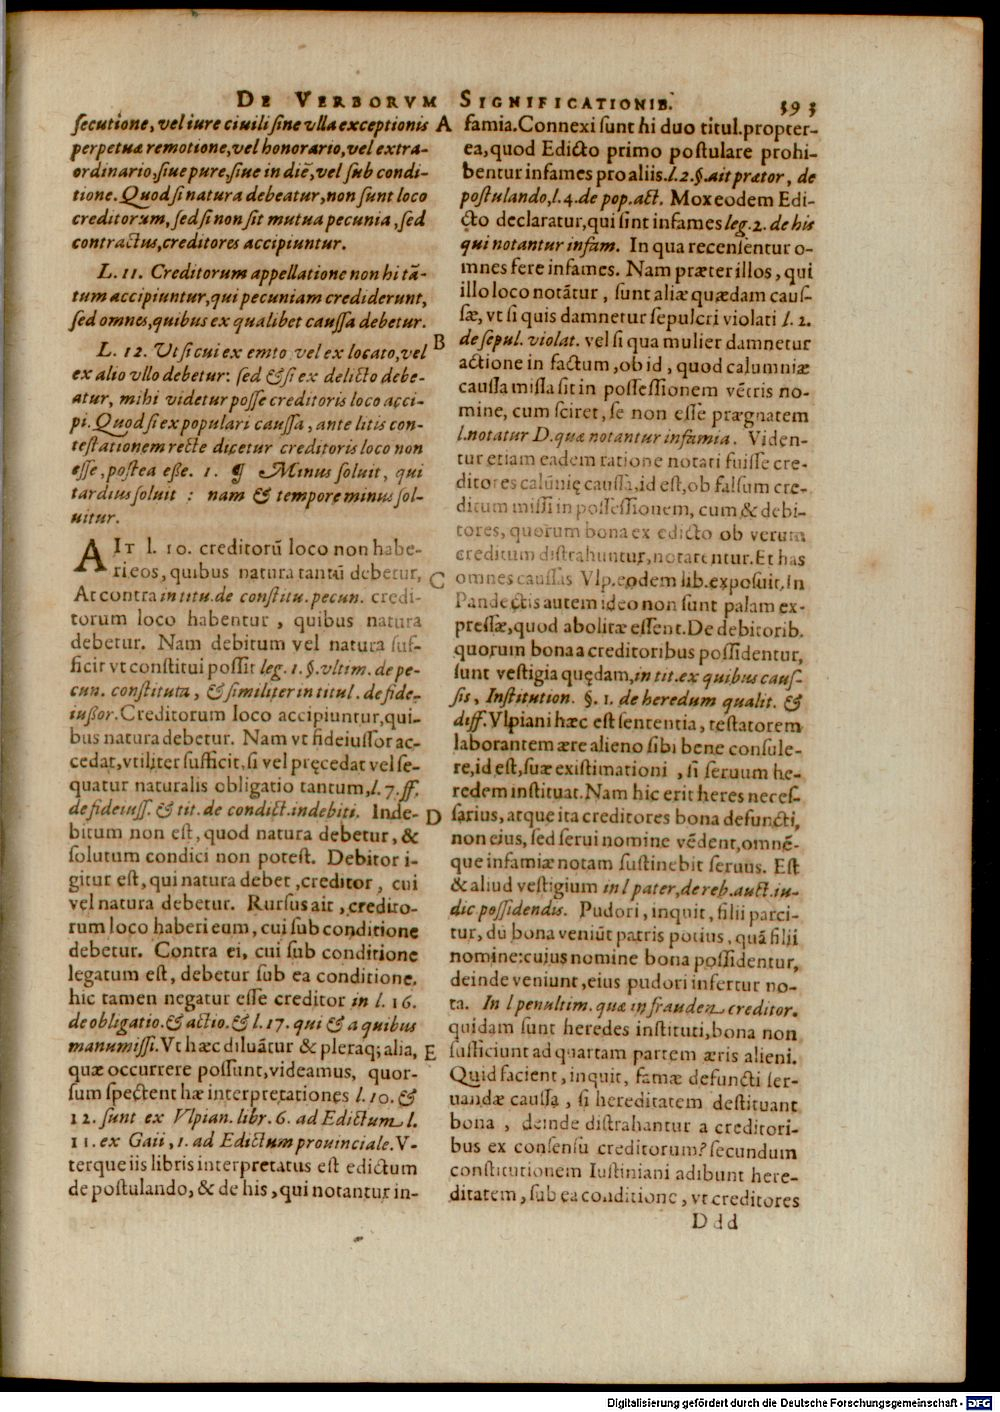 DE VERBORVM SIGNIFICATIONIB. 593
secutione, vel iure ciuili sine vlla exceptionis
perpetuæ remotione, vel honorario, vel extra-
ordinario, siue pure, siue in diē, vel sub condi-
tione. Quod si natura debeatur, non sunt loco
creditorum, sed si non sit mutua pecunia, sed
contractus, creditores accipiuntur.
L. 11. Creditorum appellatione non hi tā-
tum accipiuntur, qui pecuniam crediderunt,
sed omnes, quibus ex qualibet caussa debetur.
L. 12. Vt si cui ex emto vel ex locato, vel
ex alio vllo debetur: sed & si ex delicto debe-
atur, mihi videtur posse creditoris loco acci-
pi. Quod si ex populari caussa, ante litis con-
testationem recte dicetur creditoris loco non
esse, postea esse. 1. ¶ Minus soluit, qui
tardius soluit : nam & tempore minus sol-
uitur.
AIT l. 10. creditorū loco non habe-
ri eos, quibus natura tantū debetur,
At contra in titu. de constitu. pecun. credi-
torum loco habentur, quibus natura
debetur. Nam debitum vel natura suf-
ficit vt constitui possit leg. 1. §. vltim. de pe-
cun. constituta, & similiter in titul. de fide-
iussor. Creditorum loco accipiuntur, qui-
bus natura debetur. Nam vt fideiussor ac-
cedat, vtiliter sufficit, si vel pręcedat vel se-
quatur naturalis obligatio tantum, l. 7. ff.
de fideiuss. & tit. de condict. indebiti. Inde-
bitum non est, quod natura debetur, &
solutum condici non potest. Debitor i-
gitur est, qui natura debet, creditor, cui
vel natura debetur. Rursus ait, credito-
rum loco haberi eum, cui sub conditione
debetur. Contra ei, cui sub conditione
legatum est, debetur sub ea conditione.
hic tamen negatur esse creditor in l. 16.
de obligatio. & actio. & l. 17. qui & a quibus
manumissi. Vt hæc diluātur & pleraq; alia,
quæ occurrere possunt, videamus, quor-
sum spectent hæ interpretationes l. 10. &
12. sunt ex Vlpian. libr. 6. ad Edictum l.
11. ex Gaii, 1. ad Edictum prouinciale. V-
terque iis libris interpretatus est edictum
de postulando, & de his, qui notantur in-
A
B
C
D
E
famia. Connexi sunt hi duo titul. propter-
ea, quod Edicto primo postulare prohi-
bentur infames pro aliis. l. 2. §. ait prætor, de
postulando, l. 4. de pop. act. Mox eodem Edi-
cto declaratur, qui sint infames leg. 2. de his
qui notantur infam. In qua recensentur o-
mnes fere infames. Nam præter illos, qui
illo loco notātur, sunt aliæ quædam caus-
sæ, vt si quis damnetur sepulcri violati l. 2.
de sepul. violat. vel si qua mulier damnetur
actione in factum, ob id, quod calumniæ
caussa missa sit in possessionem vētris no-
mine, cum sciret, se non esse prægnatem
l. notatur D. quæ notantur infamia. Viden-
tur etiam eadem ratione notari fuisse cre-
ditores calūnię caussa, id est, ob falsum cre-
ditum missi in possessionem, cum & debi-
tores, quorum bona ex edicto ob verum
creditum distrahuntur, notarentur. Et has
omnes caussas Vlp. eodem lib. exposuit. In
Pandectis autem ideo non sunt palam ex-
pressæ, quod abolitæ essent. De debitorib.
quorum bona a creditoribus possidentur,
sunt vestigia quędam, in tit. ex quibus caus-
sis, Institution. §. 1. de heredum qualit. &
diff. Vlpiani hæc est sententia, testatorem
laborantem ære alieno sibi bene consule-
re, id est, suæ existimationi, si seruum he-
redem instituat. Nam hic erit heres neces-
sarius, atque ita creditores bona defuncti,
non eius, sed serui nomine vēdent, omnē-
que infamiæ notam sustinebit seruus. Est
& aliud vestigium in l pater, de reb. auct. iu-
dic possidendis. Pudori, inquit, filii parci-
tur, dū bona veniūt patris potius, quā filii
nomine: cuius nomine bona possidentur,
deinde veniunt, eius pudori infertur no-
ta. In l penultim. quæ in frauden creditor.
quidam sunt heredes instituti, bona non
sufficiunt ad quartam partem æris alieni.
Quid facient, inquit, famæ defuncti ser-
uandæ caussa, si hereditatem destituant
bona, deinde distrahantur a creditori-
bus ex consensu creditorum? secundum
constitutionem Iustiniani adibunt here-
ditatem, sub ea conditione, vt creditores
Ddd
Digitalisierung gefördert durch die Deutsche Forschungsgemeinschaft - DFG